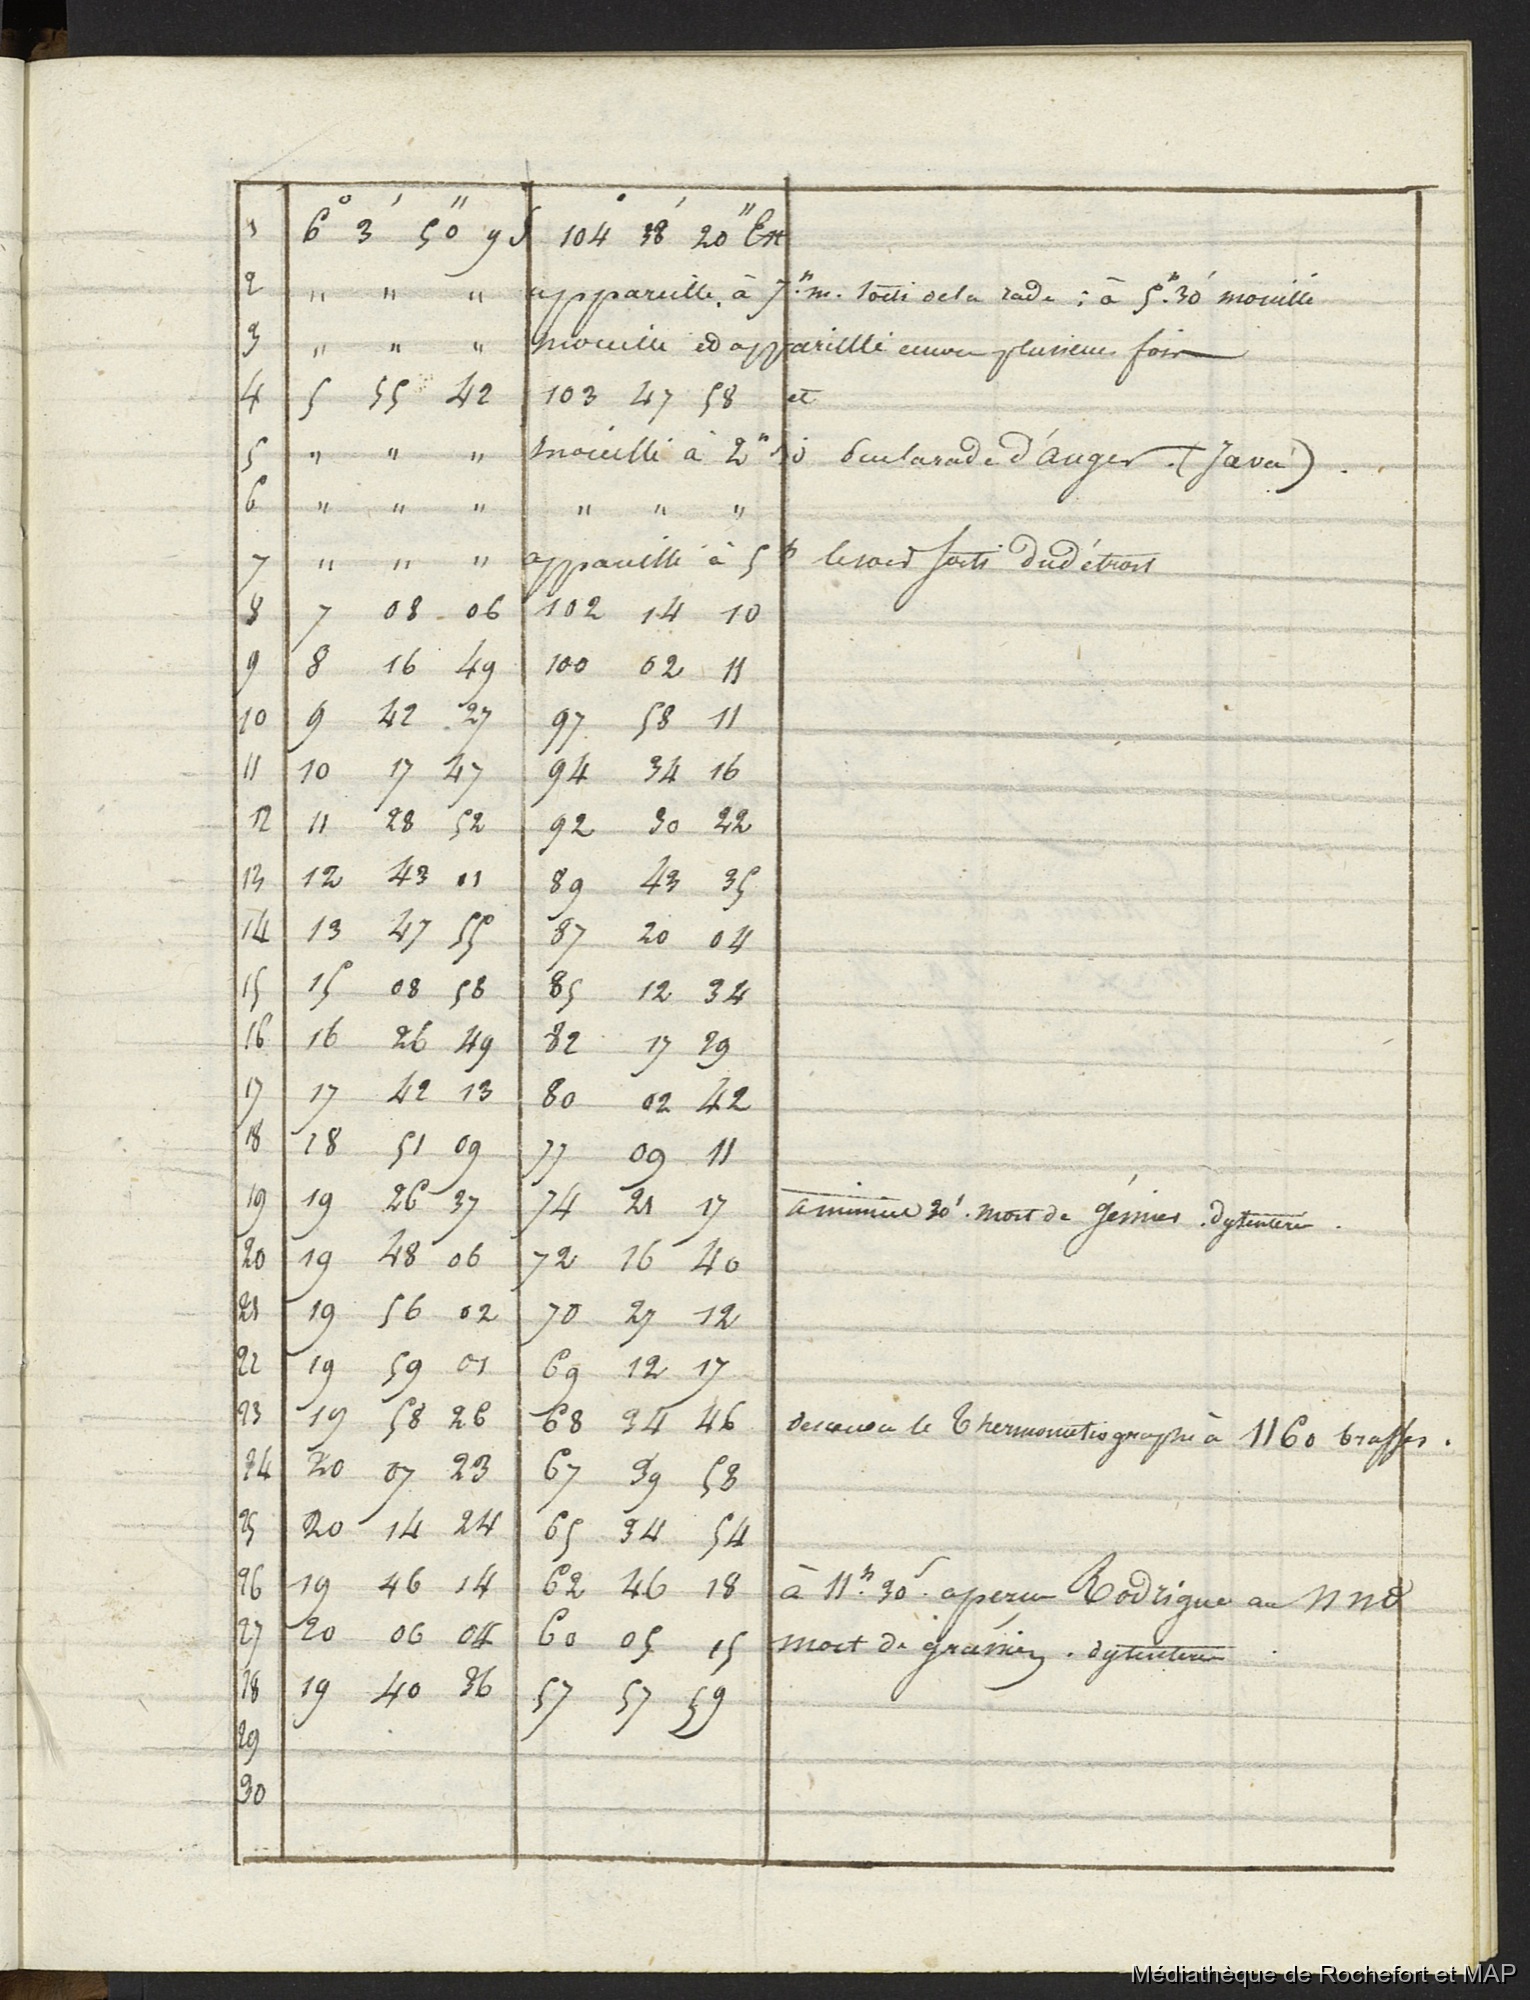 1 6° 3' 50" 9 S 104° 38' 20" Est
2 " " " appareillé à 7h m. sorti de la rade ; à 5h 30' mouillé
3 " " " mouillé et appareillé encore plusieurs fois
4 5 55 42 103 47 58 et
5 " " " mouillé à 2h sur la rade d'anger (Java) .
6 " " " " " "
7 " " " appareillé à 5h le soir sorti du détroit
8 7 08 06 102 14 10
9 8 16 49 100 02 11
10 9 42 27 97 58 11
11 10 17 47 94 34 16
12 11 28 52 92 30 22
13 12 43 01 89 43 35
14 13 47 55 87 20 04
15 15 08 58 85 12 34
16 16 26 49 82 17 29
17 17 42 13 80 02 42
18 18 51 09 77 09 11
19 19 26 37 74 21 17 à minuit 30' . mort de . dyssenterie .
20 19 48 06 72 16 40
21 19 56 02 70 27 12
22 19 59 01 69 12 17
23 19 58 26 68 34 46 descendu le Thermométrographe à 1160 brasses .
24 20 07 23 67 39 58
25 20 14 24 65 34 54
26 19 46 14 62 46 18 à 11h 30' . aperçu Rodrigue au NNE
27 20 06 04 60 05 15 mort de . dyssenterie .
28 19 40 36 57 57 59
29
30
Médiathèque de Rochefort et MAP